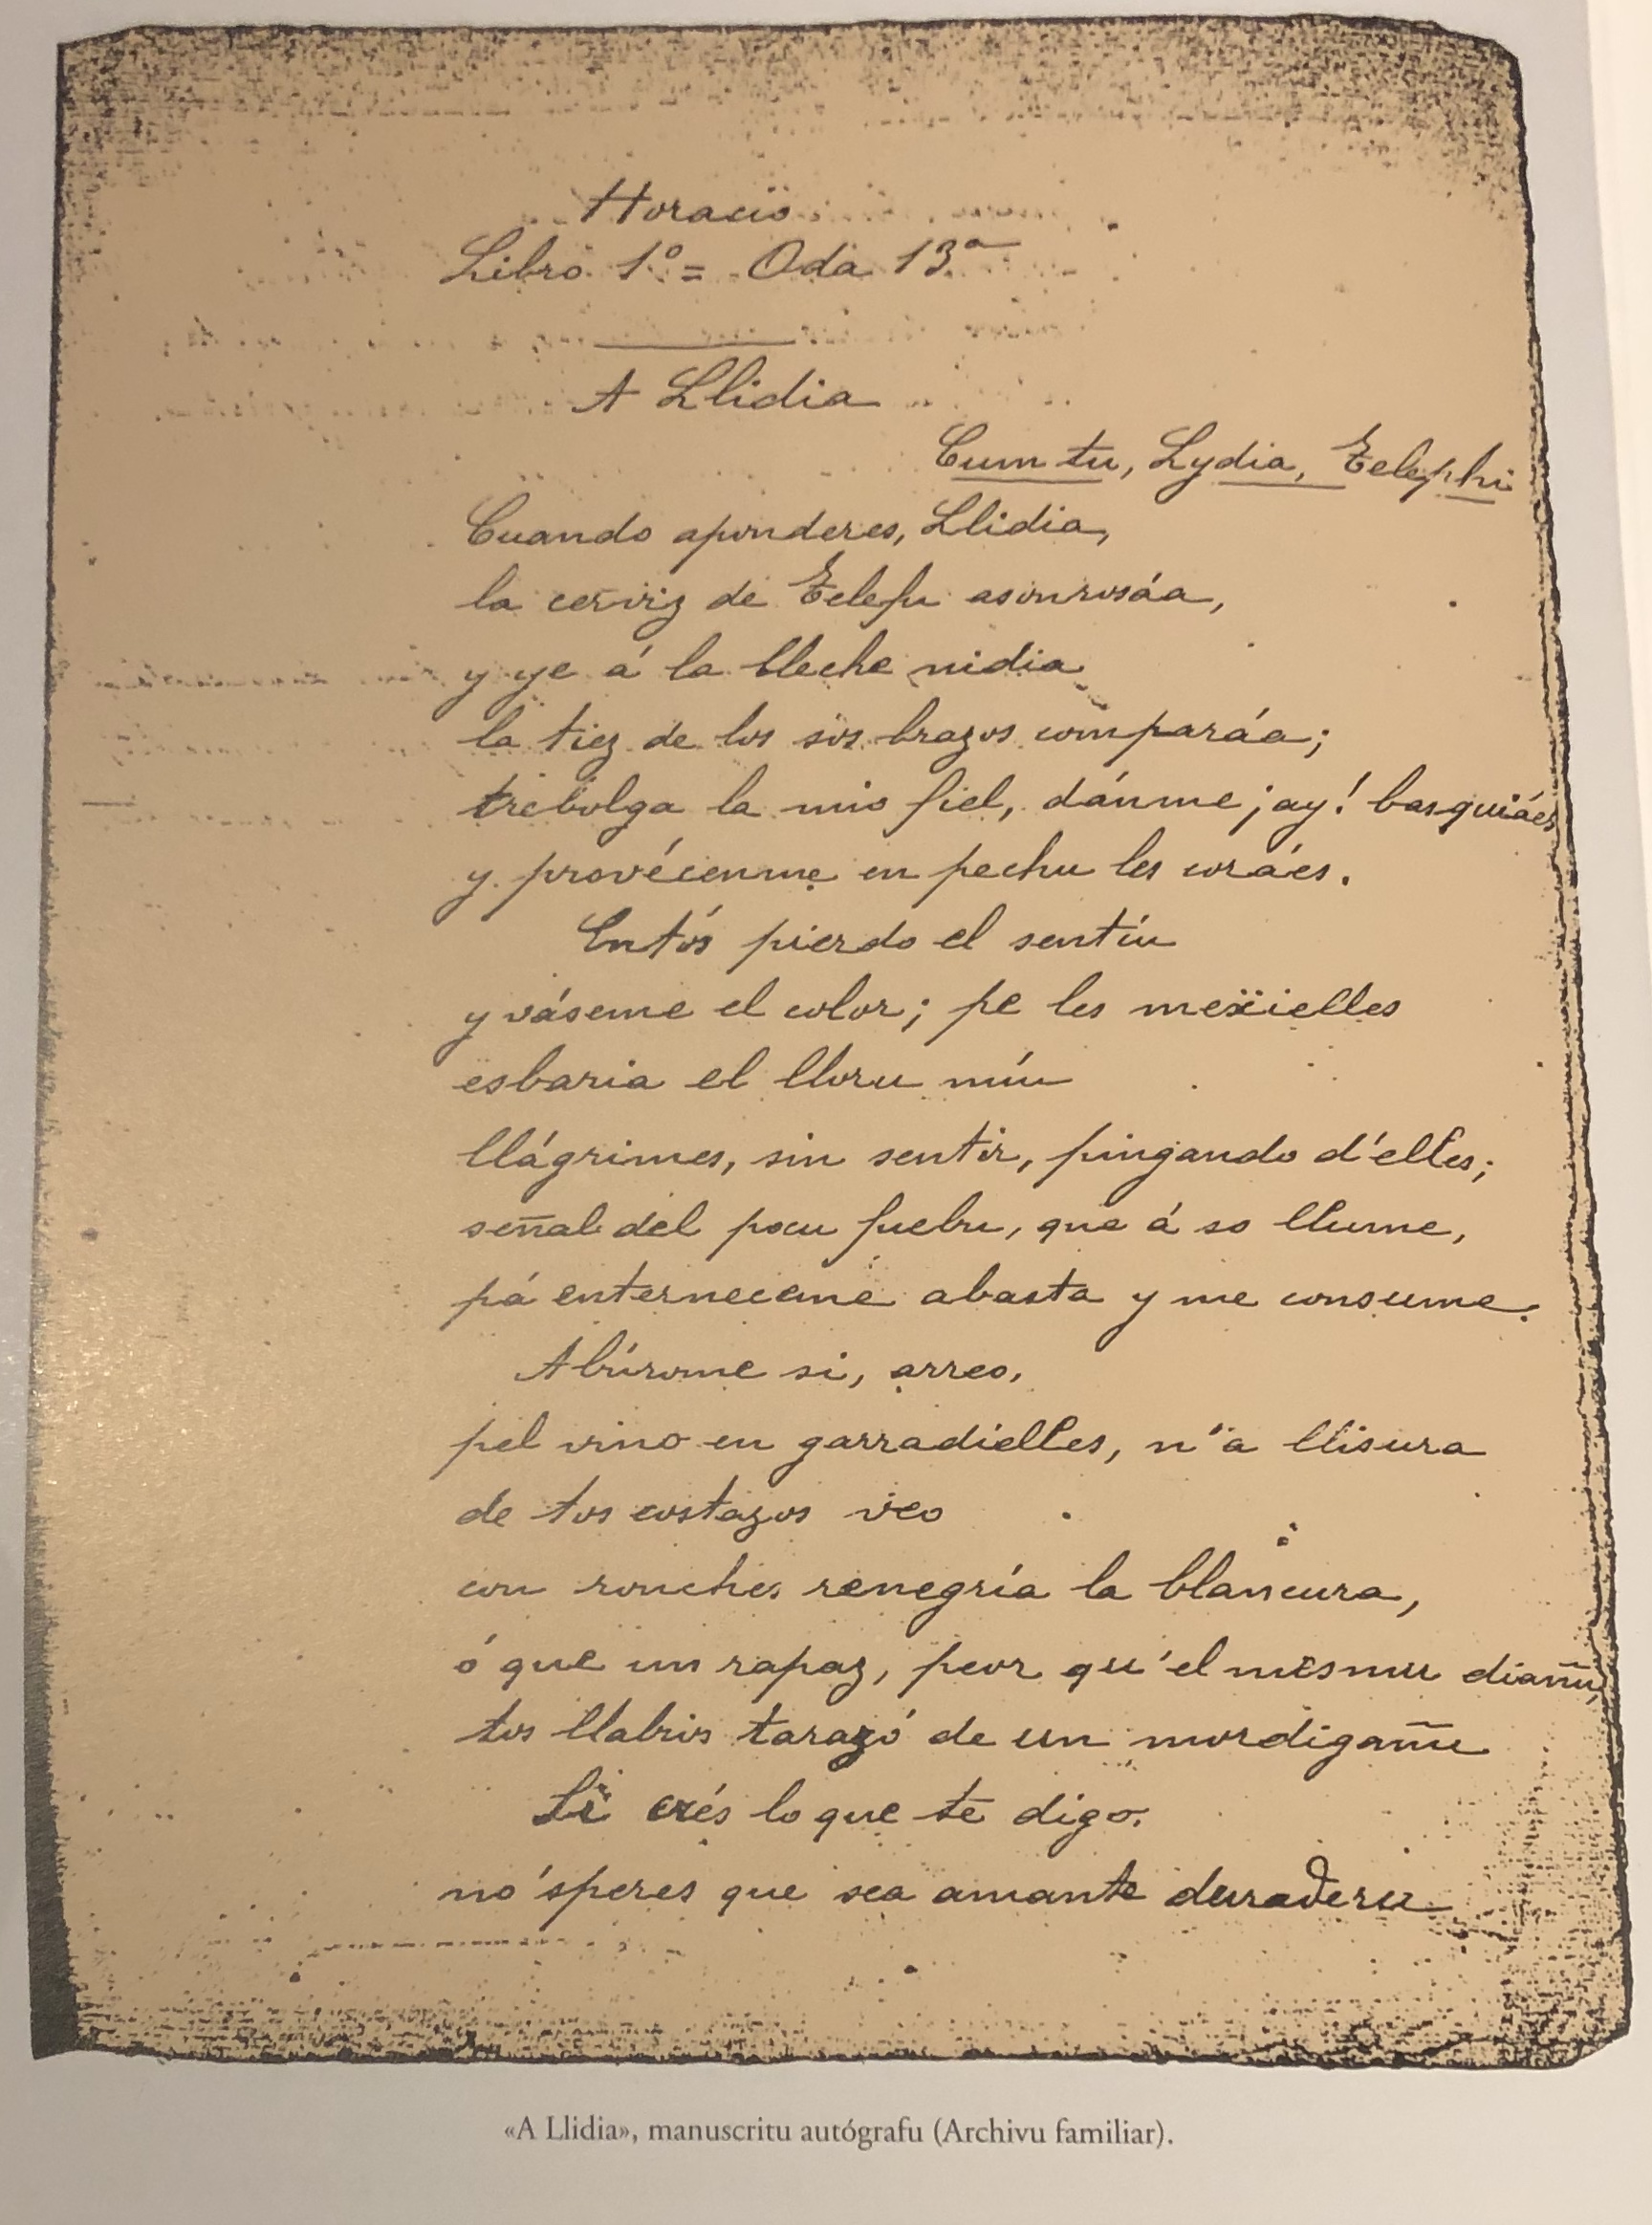 Horacio
Libro 1º = Oda 13ª
A Llidia
Cum tu, Lydia, Telephi
Cuando aponderes, Llidia,
la cerviz de Telefu asonrosáa,
y ye á la lleche nidia
la tiez de los sos brazos comparáa;
trebolga la mio fiel, dánme ¡ay! basquiáes
y provécenme en pechu les coráes.
Entós pierdo el sentíu
y váseme el color; pe les mexielles
esbaria el lloru míu
llágrimes, sin sentir, pingando d'elles;
señal del pocu fuebu, que á so llume,
pá enterneceme abasta y me consume.
Abúrome si, arreo,
pel vino en garradielles, n'a llisura
de tos costazos veo
con ronches renegría la blancura,
ó que un rapaz, peor qu'el mesmu diañu,
tos llabios tarazó de un mordigañu
Si crés lo que te digo.
no 'speres que sea amante duraderu
«A Llidia», manuscritu autógrafu (Archivu familiar).